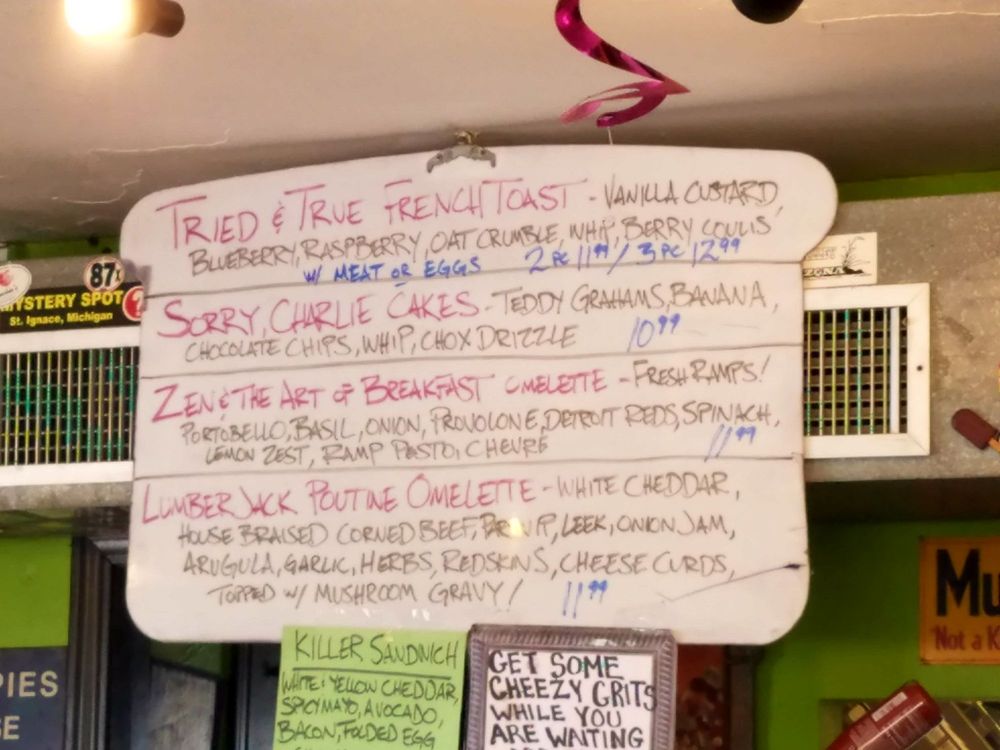 TRIED & TRUE FRENCH TOAST - VANILLA CUSTARD,
BLUEBERRY, RASPBERRY, OAT CRUMBLE, WHIP, BERRY COULIS
W/ MEAT OR EGGS 2 PC 11.99 / 3 PC 12.99
SORRY, CHARLIE CAKES - TEDDY GRAHAMS, BANANA,
CHOCOLATE CHIPS, WHIP, CHOX DRIZZLE 10.99
ZEN & THE ART OF BREAKFAST OMELETTE - FRESH RAMPS!
PORTOBELLO, BASIL, ONION, PROVOLONE, DETROIT REDS, SPINACH,
LEMON ZEST, RAMP PESTO, CHEVRE 11.99
LUMBERJACK POUTINE OMELETTE - WHITE CHEDDAR,
HOUSE BRAISED CORNED BEEF, PARSNIP, LEEK, ONION JAM,
ARUGULA, GARLIC, HERBS, REDSKINS, CHEESE CURDS,
TOPPED W/ MUSHROOM GRAVY! 11.99
87
MYSTERY SPOT
St. Ignace, Michigan
ZONA
KILLER SANDWICH
WHITE & YELLOW CHEDDAR,
SPICY MAYO, AVOCADO,
BACON, FOLDED EGG
GET SOME
CHEEZY GRITS
WHILE YOU
ARE WAITING
Mu
"Not a K
PIES
SE